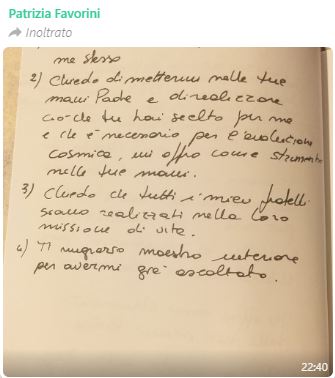 Patrizia Favorini
Inoltrato
me stesso
2) Chiedo di mettermi nelle tue
mani Padre e di realizzare
ciò che tu hai scelto per me
e che è necessario per l'evoluzione
cosmica, mi offro come strumento
nelle tue mani.
3) Chiedo che tutti i miei fratelli
siano realizzati nella loro
missione di vita.
4) Ti ringrazio maestro interiore
per avermi già ascoltato.
22:40